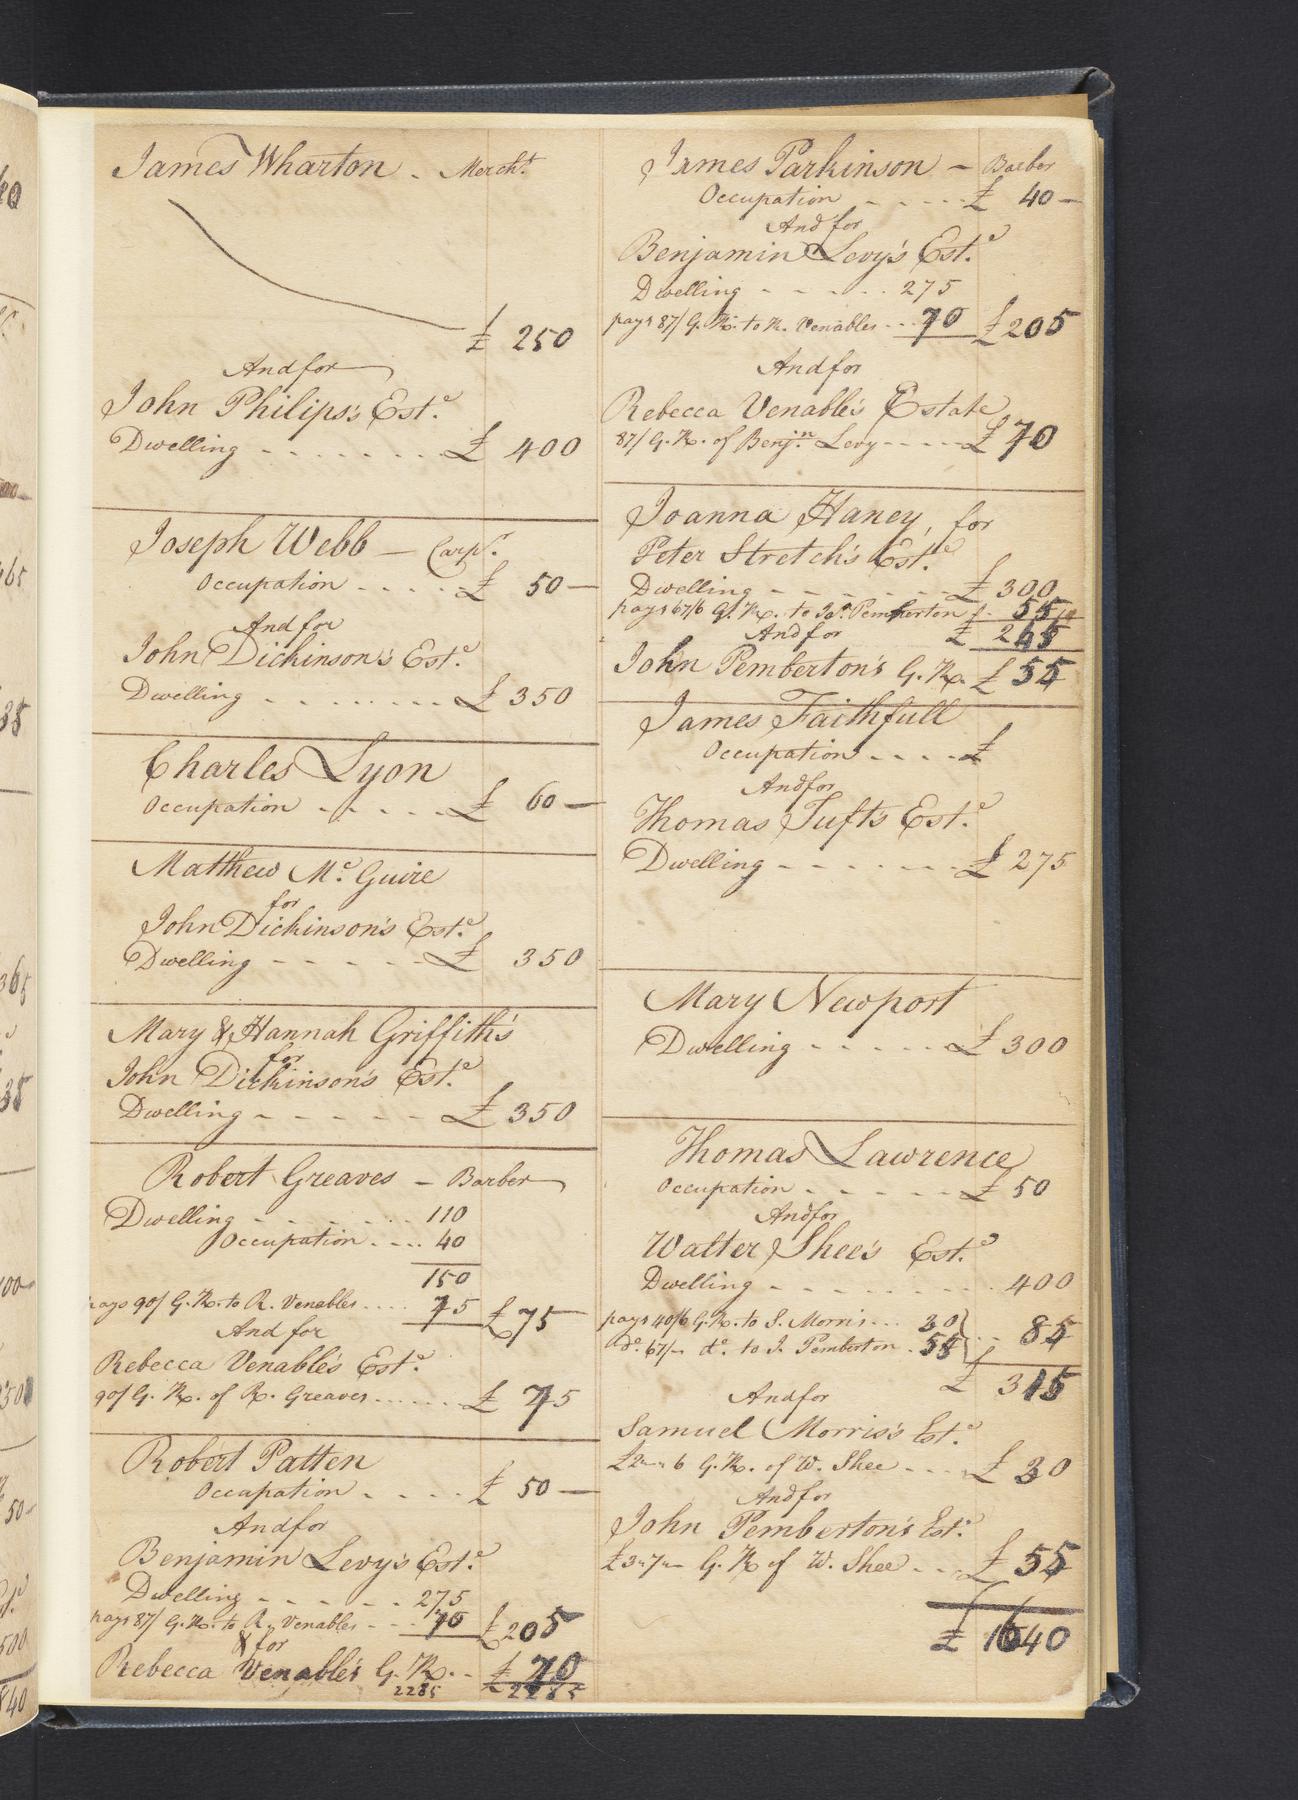 James Wharton - Mercht.
£ 250
And for
John Philips's Este.
Dwelling - - - - - - - £ 400
Joseph Webb - Carpr.
Occupation - - - - £ 50 -
And for
John Dickinson's Este.
Dwelling - - - - - - - - £ 350
Charles Lyon
Occupation - - - - - £ 60 -
Matthew Mc. Guire
for
John Dickinson's Este.
Dwelling - - - - - - £ 350
Mary & Hannah Griffith's
for
John Dickinson's Este.
Dwelling - - - - - - £ 350
Robert Greaves - Barber
Dwelling - - - - - - 110
Occupation - - - - 40
150
pays 90/ G. R. to R. Venables - - - - 75 £ 75
And for
Rebecca Venable's Este.
90/ G. R. of R. Greaves - - - - - - £ 75
Robert Patten
Occupation - - - - £ 50 -
And for
Benjamin Levy's Este.
Dwelling - - - - - - 275
pays 87/ G. R. to R. Venables - - - 70 £ 205
& for
Rebecca Venable's G. R. - - £ 70
2285 £ 2285
James Parkinson - Barber
Occupation - - - - - £ 40 -
And for
Benjamin Levy's Este.
Dwelling - - - - - - 275
pays 87/ G. R. to R. Venables - - - 70 £ 205
And for
Rebecca Venable's Estate
87/ G. R. of Benjn. Levy - - - - - £ 70
Joanna Haney, for
Peter Stretch's Este.
Dwelling - - - - - - - £ 300
pays 67/6 G. R. to Jo. Pemberton £ - 55
And for £ 245
John Pemberton's G. R. £ 55
James Faithfull
Occupation - - - - £
And for
Thomas Tuft's Este.
Dwelling - - - - - - - £ 275
Mary Newport
Dwelling - - - - - £ 300
Thomas Lawrence
Occupation - - - - - £ 50
And for
Walter Shee's Este.
Dwelling - - - - - - - - - 400
pays 40/6 G. R. to S. Morris - - - 30
do. 67/- do. to J. Pemberton - 55 } - - 85
£ 315
And for
Samuel Morris's Este.
£2 - 6 G. R. of W. Shee - - - £ 30
And for
John Pemberton's Este.
£3 - 7 - G. R. of W. Shee - - - £ 55
£ 1640